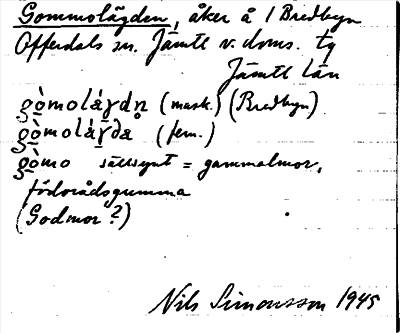 Gommolägden, åker å 1 Bredbyn
Offerdals sn. Jämtl v. doms. tg
Jämtl län
gòmoláγdn̥ (mask.) (Bredbyn)
gòmoláγda (fem.)
gòmo sällsynt = gammalmor,
förlorådsgumma
(Godmor?)
Nils Simonsson 1945